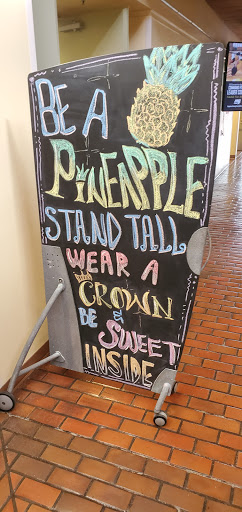 BE A
PINEAPPLE
STAND TALL
WEAR A
CROWN
& BE SWEET
INSIDE